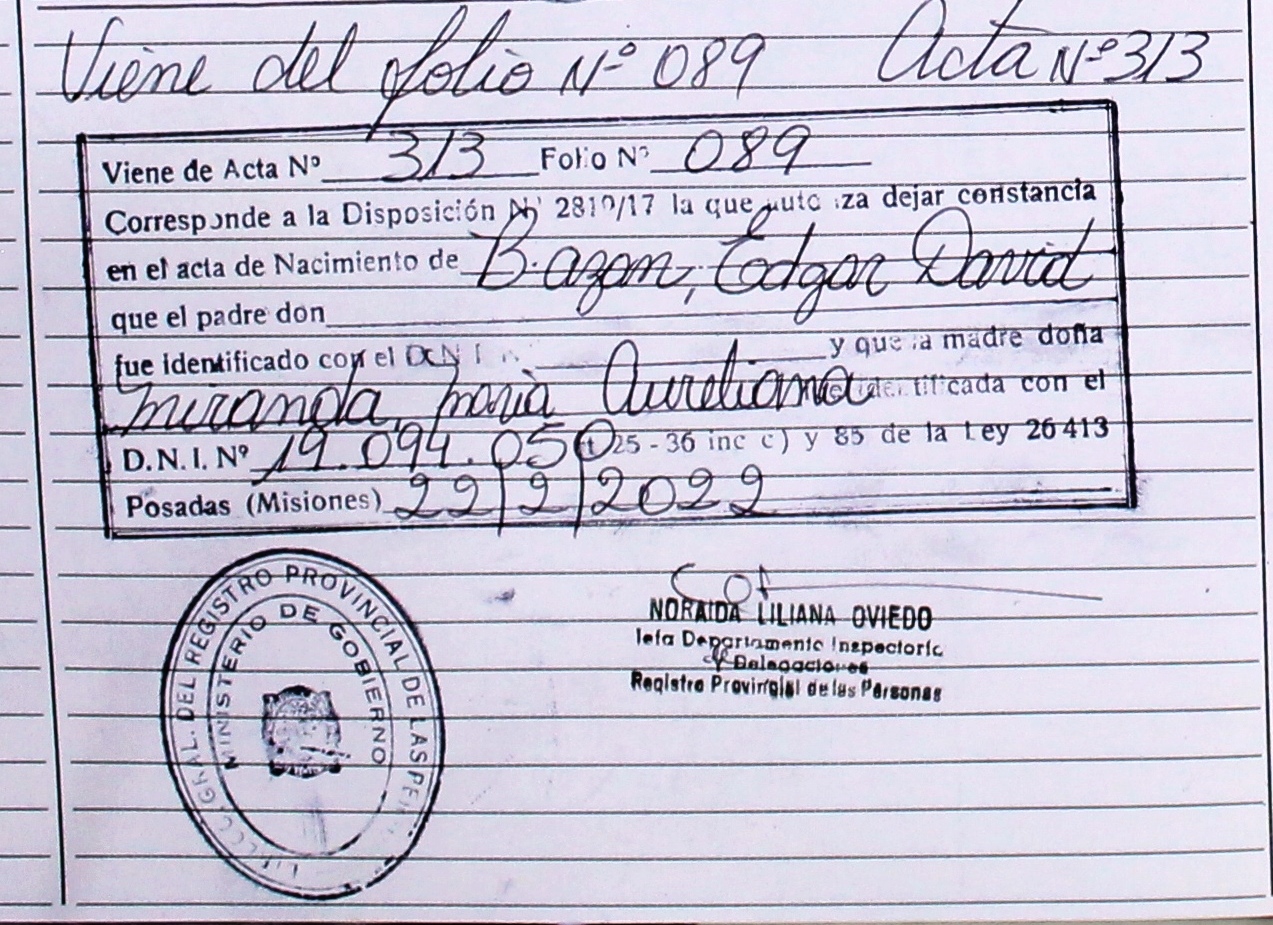 Viene del folio Nº 089 Acta Nº 313
Viene de Acta Nº 313 Folio Nº 089
Corresponde a la Disposición Nº 2810/17 la que autoriza dejar constancia
en el acta de Nacimiento de Bazan, Edgar David
que el padre don
fue identificado con el D.N.I. y que la madre doña
Miranda, maria Aureliana identificada con el
D.N.I. Nº 19.094.050 25 - 36 inc c) y 85 de la Ley 26413
Posadas (Misiones) 22/2/2022
GRAL. DEL REGISTRO PROVINCIAL DE LAS
MINISTERIO DE GOBIERNO
NORAIDA LILIANA OVIEDO
Jefa Departamento Inspectoria
y Delegaciones
Registro Provincial de las Personas